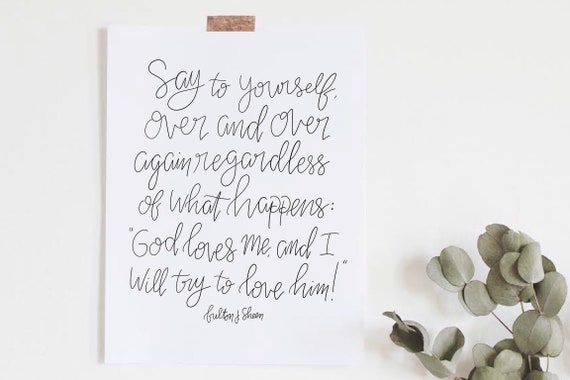 Say to yourself,
over and over
again regardless
of what happens:
"God loves me, and I
will try to love him!"
fulton j sheen